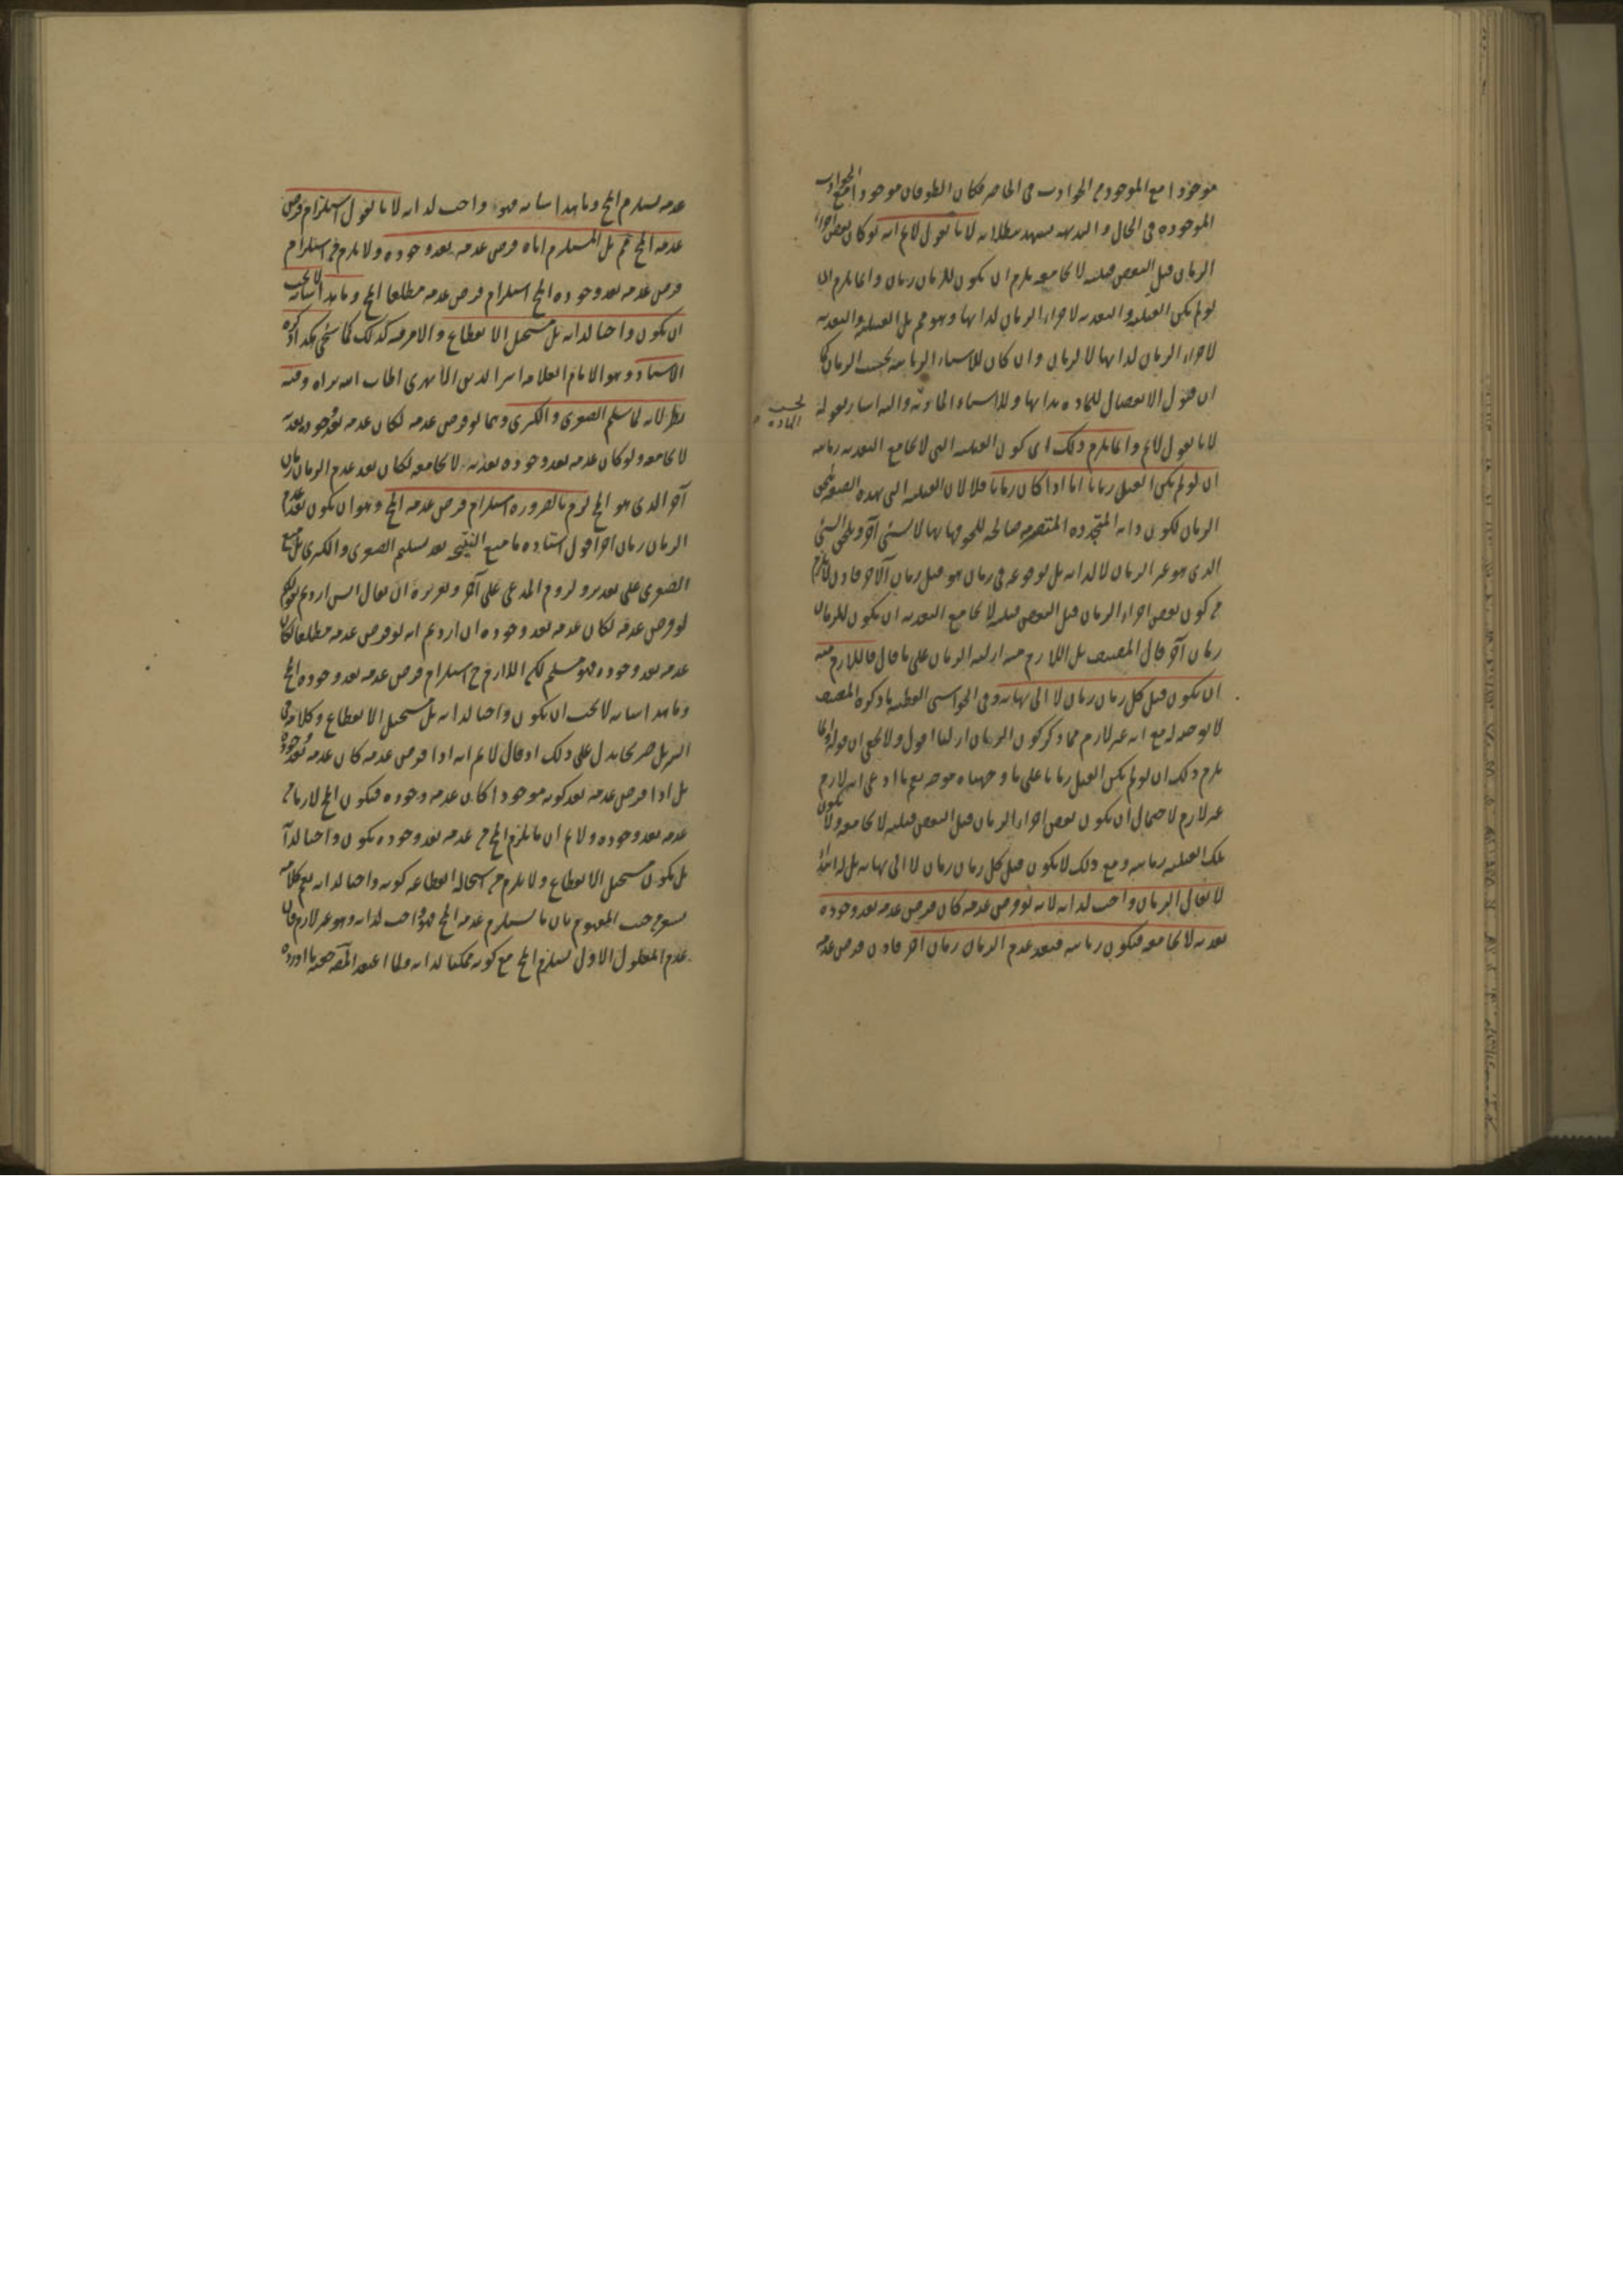 موجودا مع الموجود من الحوادث فى الحاضر فكان الطوفان موجودا مع الحوادث
الموجوده فى الحال والبديهه تشهد ببطلانه لانا نقول لانم انه لو كان بعض اجزاء
الزمان قبل البعض قبليه لا تجامعه يلزم ان يكون للزمان زمان وانما يلزم ان
لو لم يكن القبليه والبعديه لاجزاء الزمان لذاتها وهو مم بل القبليه والبعديه
لاجزاء الزمان لذاتها لا لزمان وان كان للاشياء الزمانيه بحسب الزمان كما
ان قبول الانفصال للماده بذاتها وللاشياء الماديه واليه اشار بقوله
بحسب الماده
لانا نقول لانم وانما يلزم ذلك اى كون القبليه التى لا تجامع البعديه زمانيه
ان لو لم يكن القبل زمانا اما اذا كان زمانا فلا لان القبليه التى بهذه الصفه تلحق
الزمان لكون ذاته المتجدده المتصرمه صالحه للحوقها بها لا لشئ آخر ويلحق الشئ
الذى هو غير الزمان لا لذاته بل لوقوعه فى زمان هو قبل زمان الآخر فاذن لا يلزم
من كون بعض اجزاء الزمان قبل البعض قبليه لا تجامع البعديه ان يكون للزمان
زمان آخر قال المصنف بل اللازم منه ازليه الزمان على ما قال فاللازم منه
ان يكون قبل كل زمان زمان لا الى نهايه وفى الحواشى القطبيه ما ذكره المصنف
لا توجيه له مع انه غير لازم مما ذكر كون الزمان ازليا اقول ولا يخفى ان قوله انما
يلزم ذلك ان لو لم يكن القبل زمانا على ما وجهناه موجه نعم ما ادعى انه لازم
غير لازم لاحتمال ان يكون بعض اجزاء الزمان قبل البعض قبليه لا تجامعه ولا يكون
تلك القبليه زمانيه ومع ذلك لا يكون قبل كل زمان زمان لا الى نهايه بل له ابتداء
لا يقال الزمان واجب لذاته لانه لو فرض عدمه كان فرض عدمه بعد وجوده
بعديه لا تجامعه فيكون زمانيه فبعد عدم الزمان زمان آخر فاذن فرض عدمه
عدمه يستلزم المح وما هذا شانه فهو واجب لذاته لانا نقول استلزام فرض
عدمه المح مم بل المستلزم اياه فرض عدمه بعد وجوده ولا يلزم من استلزام
فرض عدمه بعد وجوده المح استلزام فرض عدمه مطلقا المح وما هذا شانه لا يجب
ان يكون واجبا لذاته بل مستحيل الانقطاع والامر فيه كذلك كما سيجئ هكذا ذكره
الاستاد وهو الامام العلامه اثير الدين الابهرى اطاب الله ثراه وفيه
نظر لانه لما سلم الصغرى والكبرى وهما لو فرض عدمه لكان عدمه بعد وجوده بعديه
لا تجامعه ولو كان عدمه بعد وجوده بعديه لا تجامعه لكان بعد عدم الزمان زمان
آخر الذى هو المح لزم بالضروره استلزام فرض عدمه المح وهو ان يكون بعد عدم
الزمان زمان آخر اقول استاده ما منع النتيجه بعد تسليم الصغرى والكبرى بل منع
الصغرى على تقدير ولزوم المدعى على آخر وتقريره ان يقال ايش اردتم بقولكم
لو فرض عدمه لكان عدمه بعد وجوده ان اردتم انه لو فرض عدمه مطلقا لكان
عدمه بعد وجوده فهو مسلم لكن اللازم ح استلزام فرض عدمه بعد وجوده المح
وما هذا شانه لا يجب ان يكون واجبا لذاته بل مستحيل الانقطاع وكلامه فى
التنزيل صريحا يدل على ذلك اذ قال لانم انه اذا فرض عدمه كان عدمه بعد وجوده
بل اذا فرض عدمه بعد كونه موجودا كان عدمه وجوده فيكون المح لازما من
عدمه بعد وجوده ولانم ان ما يلزم المح من عدمه بعد وجوده يكون واجبا لذاته
بل يكون مستحيل الانقطاع ولا يلزم من استحاله انقطاعه كونه واجبا لذاته نعم كلامه
من حيث المفهوم بان ما يستلزم عدمه المح فهو واجب لذاته وهو غير لازم فان
عدم المعلول الاول يستلزم المح مع كونه ممكنا لذاته ولما اعتقد صحه ما اورده